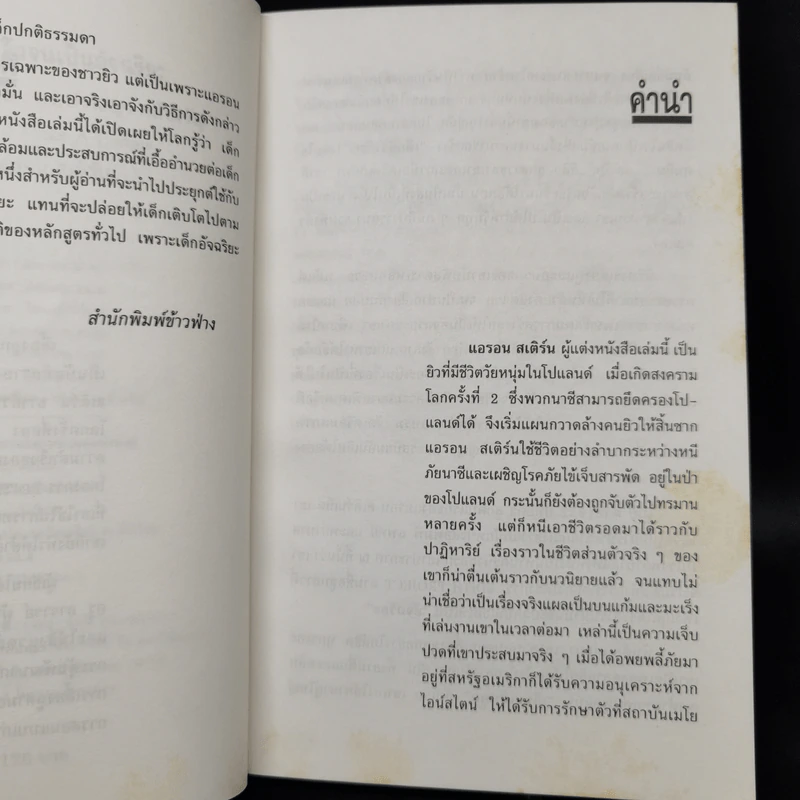 ด็กปกติธรรมดา
รเฉพาะของชาวยิว แต่เป็นเพราะแอรอน
มั่น และเอาจริงเอาจังกับวิธีการดังกล่าว
หนังสือเล่มนี้ได้เปิดเผยให้โลกรู้ว่า เด็ก
ล้อมและประสบการณ์ที่เอื้ออำนวยต่อเด็ก
หนึ่งสำหรับผู้อ่านที่จะนำไปประยุกต์ใช้กับ
ยะ แทนที่จะปล่อยให้เด็กเติบโตไปตาม
ิของหลักสูตรทั่วไป เพราะเด็กอัจฉริยะ
สำนักพิมพ์ข้าวฟ่าง
คำนำ
แอรอน สเติร์น ผู้แต่งหนังสือเล่มนี้ เป็น
ยิวที่มีชีวิตวัยหนุ่มในโปแลนด์ เมื่อเกิดสงคราม
โลกครั้งที่ 2 ซึ่งพวกนาซีสามารถยึดครองโป-
แลนด์ได้ จึงเริ่มแผนกวาดล้างคนยิวให้สิ้นซาก
แอรอน สเติร์นใช้ชีวิตอย่างลำบากระหว่างหนี
ภัยนาซีและเผชิญโรคภัยไข้เจ็บสารพัด อยู่ในป่า
ของโปแลนด์ กระนั้นก็ยังต้องถูกจับตัวไปทรมาน
หลายครั้ง แต่ก็หนีเอาชีวิตรอดมาได้ราวกับ
ปาฏิหาริย์ เรื่องราวในชีวิตส่วนตัวจริง ๆ ของ
เขาก็น่าตื่นเต้นราวกับนวนิยายแล้ว จนแทบไม่
น่าเชื่อว่าเป็นเรื่องจริงแผลเป็นบนแก้มและมะเร็ง
ที่เล่นงานเขาในเวลาต่อมา เหล่านี้เป็นความเจ็บ
ปวดที่เขาประสบมาจริง ๆ เมื่อได้อพยพลี้ภัยมา
อยู่ที่สหรัฐอเมริกาก็ได้รับความอนุเคราะห์จาก
ไอน์สไตน์ ให้ได้รับการรักษาตัวที่สถาบันเมโย